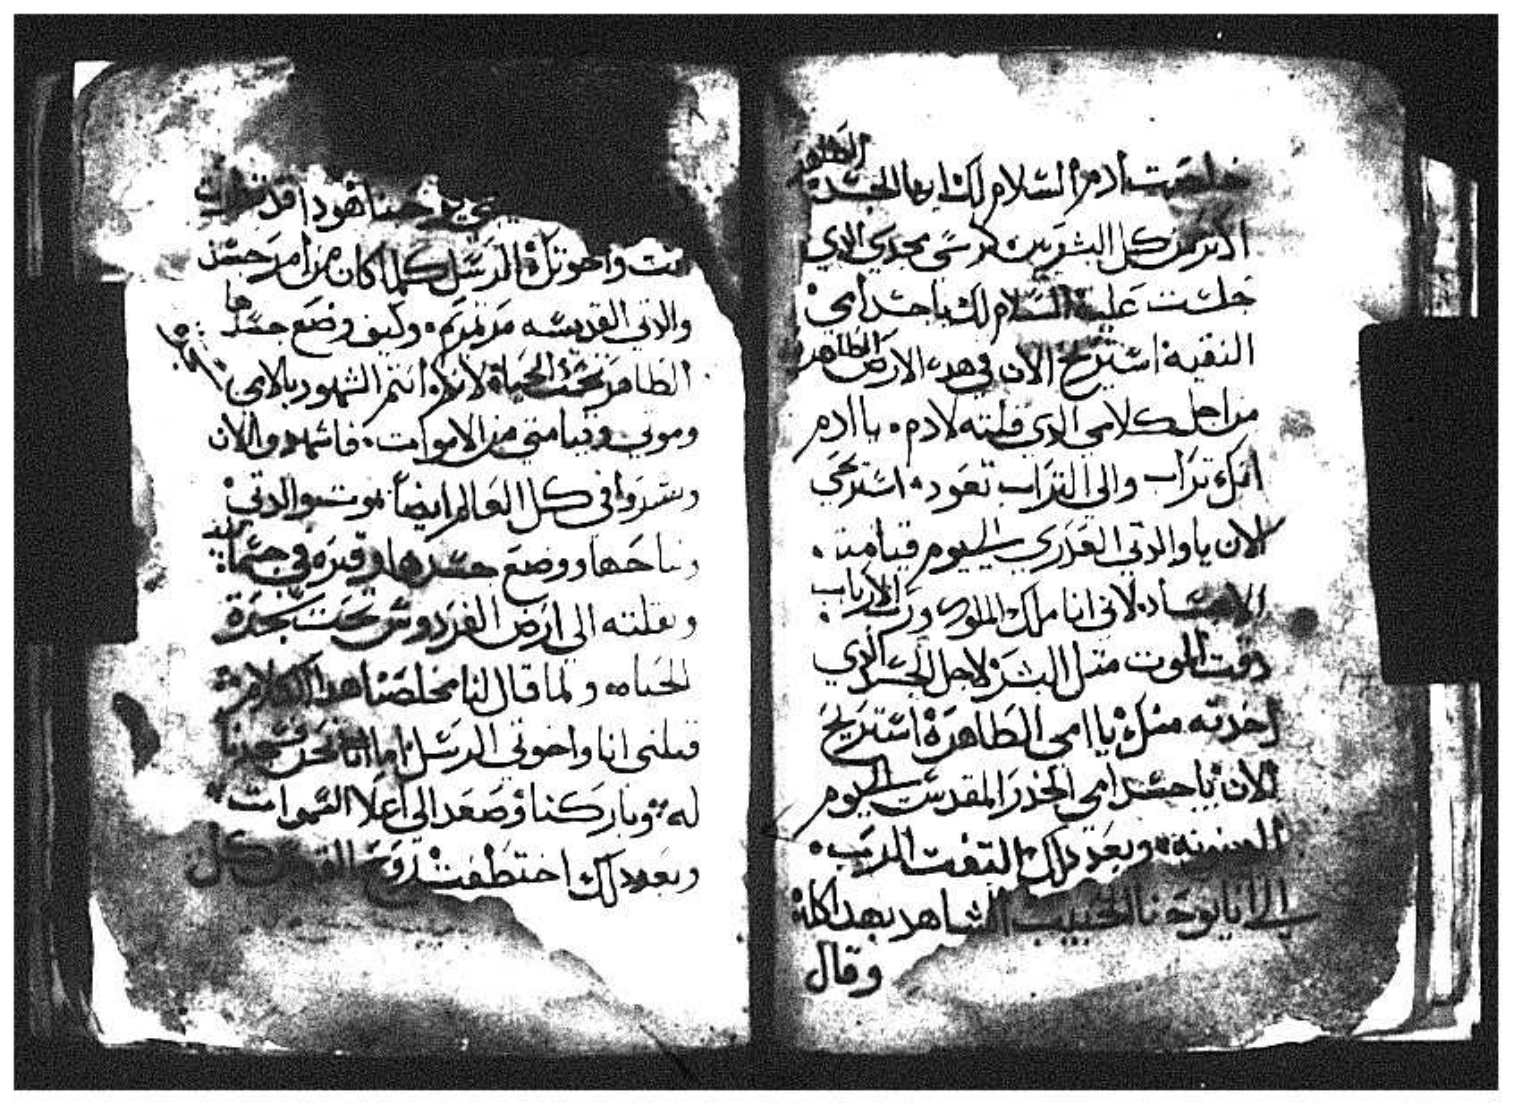 خلصت ادم السلام لك ايها الجسد الطاهر
الاكرم من كل البشريين كرسي مجدي الدي
جلست عليه السلام لك يا جسد امي
النقيه استريح الان في هده الارض الطاهره
من اجل كلامي الدي قلته لادم يا ادم
انك تراب والى التراب تعود استريحي
الان يا والدتي العدري الى يوم قيامة
الاجساد لاني انا ملك الملوك ورب الارباب
دقت الموت متل البشر لاجل الجسد الدي
اخدته منك يا امي الطاهرة استريح
الان يا جسد امي الخدر المقدس الى يوم
وبعد دلك التفت الرب
الي انا يوحنا الحبيب الشاهد بهدا كله
وقال
يا حبيبي يوحنا هودا قد
انت واخوتك الرسل كلما كان من امر جسد
والدتي القديسه مرتمريم وكيف وضع جسدها
الطاهر تحت الحياة لانكم انتم الشهود بالامي
وموتي وقيامتي من الاموات فاشهدوا الان
وبشروا في كل العالم ايضا بموت والدتي
ونياحها ووضع جسدها وقبره في جتسمانيه
ونقلته الى ارض الفردوس تحت شجرة
الحياه ولما قال لنا مخلصنا هدا الكلام
قبلني انا واخوتي الرسل اما انا نحن فسجدنا
له وباركنا وصعد الى اعلا السموات
وبعد دلك اختطفت روح القدس كل